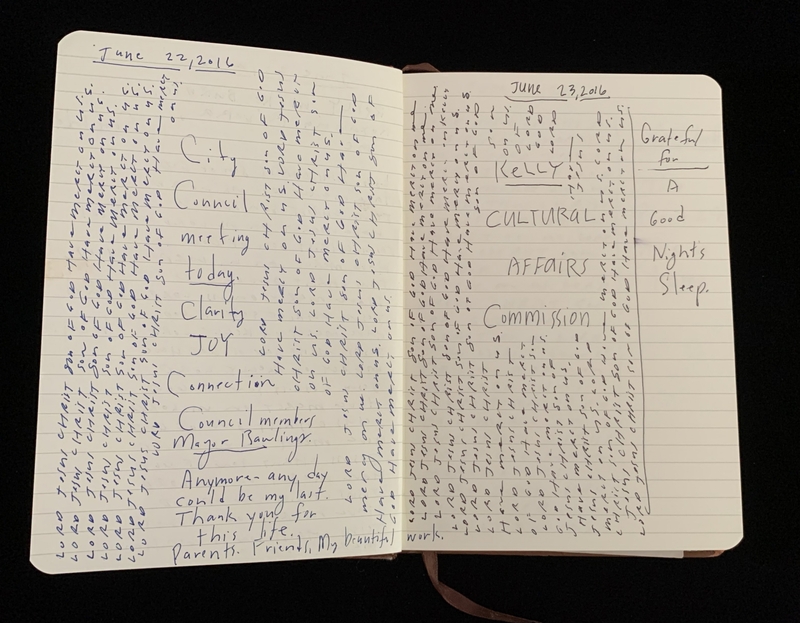 June 22, 2016
LORD JESUS CHRIST SON OF GOD HAVE MERCY ON US.
LORD JESUS CHRIST SON OF GOD HAVE MERCY ON US.
LORD JESUS CHRIST SON OF GOD HAVE MERCY ON US.
LORD JESUS CHRIST SON OF GOD HAVE MERCY ON US.
LORD JESUS CHRIST SON OF GOD HAVE MERCY ON US.
LORD JESUS CHRIST SON OF GOD HAVE MERCY ON US.
LORD JESUS CHRIST SON OF GOD HAVE MERCY
ON US.
City
Council
meeting
today.
Clarity
JOY
Connection
Council members
Mayor Rawlings.
Anymore - any day
could be my last.
Thank you for
this life.
Parents. Friends, My beautiful work.
LORD JESUS CHRIST SON OF GOD
HAVE MERCY ON US. LORD JESUS
CHRIST SON OF GOD HAVE MERCY
ON US. LORD JESUS CHRIST SON
OF GOD HAVE MERCY ON US.
LORD JESUS CHRIST SON OF GOD HAVE
MERCY ON US. LORD JESUS CHRIST SON OF GOD
HAVE MERCY ON US. LORD JESUS CHRIST SON OF
GOD HAVE MERCY ON US.
June 23, 2016
LORD JESUS CHRIST SON OF GOD HAVE MERCY ON ME
LORD JESUS CHRIST SON OF GOD HAVE MERCY ON ME
LORD JESUS CHRIST SON OF GOD HAVE MERCY ON ME
LORD JESUS CHRIST SON OF GOD HAVE MERCY ON KELLY
LORD JESUS CHRIST SON OF GOD HAVE MERCY ON US.
LORD JESUS CHRIST SON OF GOD HAVE MERCY ON US.
LORD JESUS CHRIST SON OF GOD
HAVE MERCY ON US
KELLY
CULTURAL
AFFAIRS
Commission
LORD JESUS CHRIST SON OF GOD HAVE MERCY ON US
Grateful
for
A
Good
Nights
Sleep.